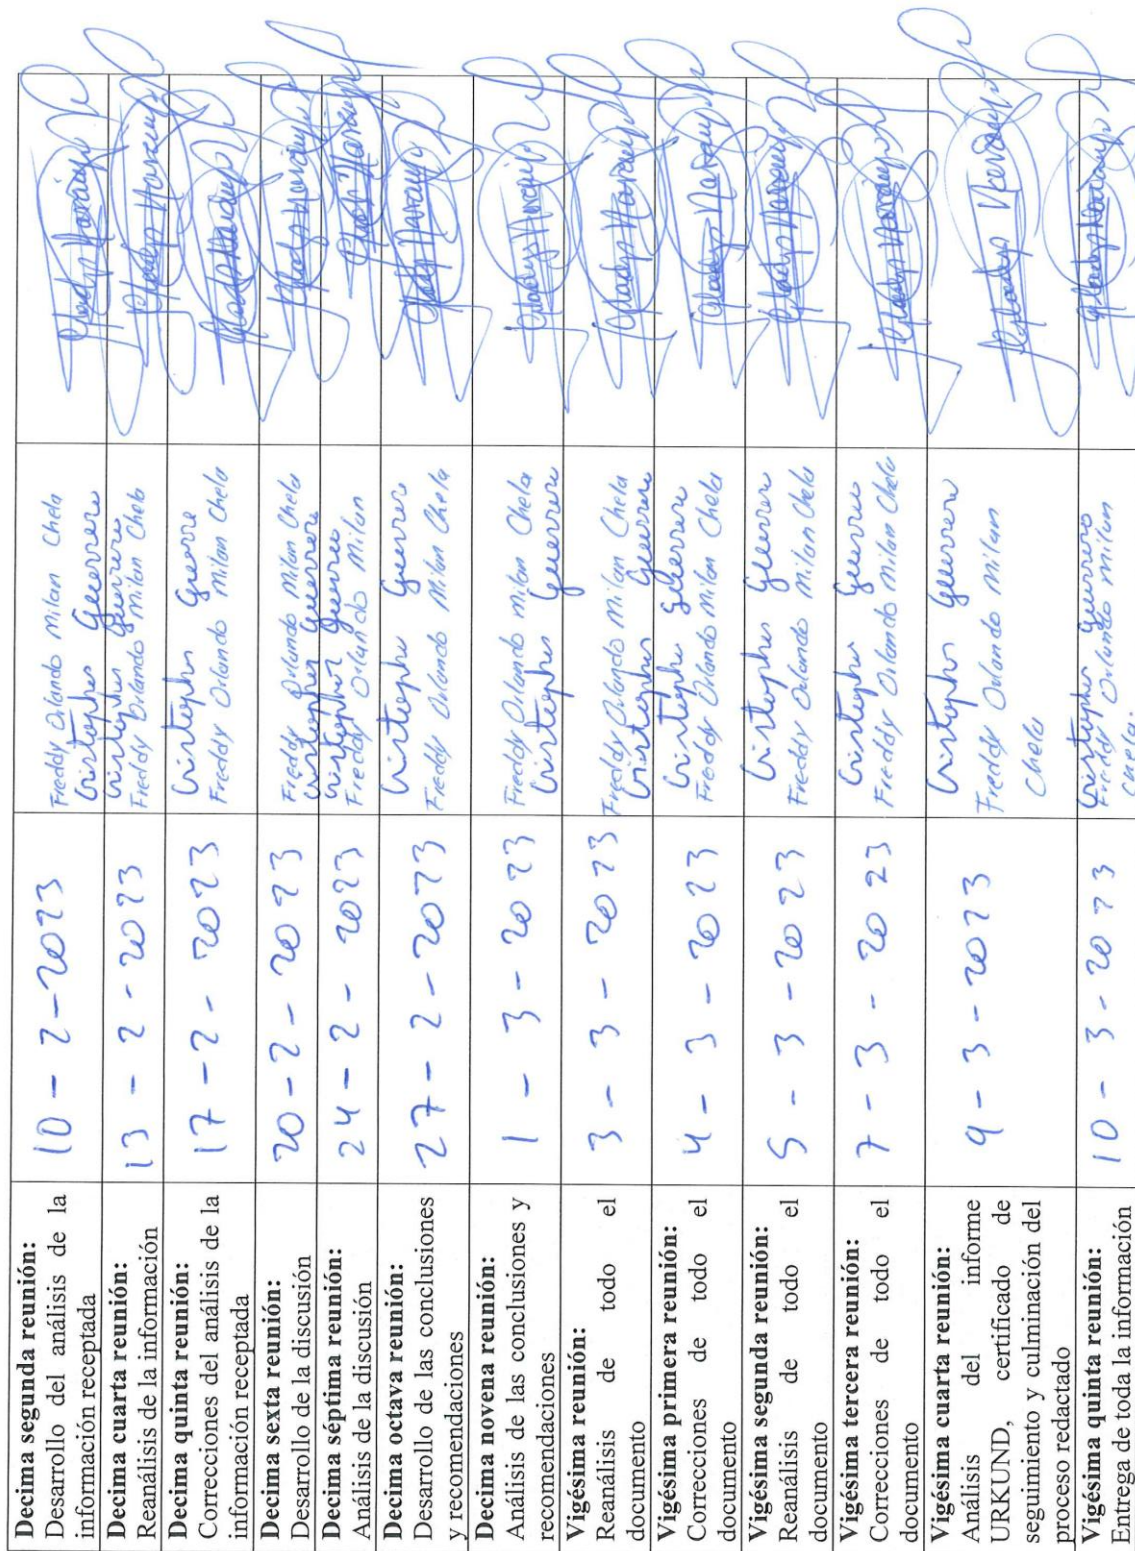 Decima segunda reunión:
Desarrollo del análisis de la
información receptada
10 - 2 - 2023
Freddy Orlando Milan Chela
Cristopher Guerrero
Gladys Naranjo
Decima cuarta reunión:
Reanálisis de la información
13 - 2 - 2023
Cristopher Guerrero
Freddy Orlando Milan Chela
Gladys Naranjo
Decima quinta reunión:
Correcciones del análisis de la
información receptada
17 - 2 - 2023
Cristopher Guerre
Freddy Orlando Milan Chela
Gladys Naranjo
Decima sexta reunión:
Desarrollo de la discusión
20 - 2 - 2023
Freddy Orlando Milan Chela
Cristopher Guerrero
Gladys Naranjo
Decima séptima reunión:
Análisis de la discusión
24 - 2 - 2023
Cristopher Guerrero
Freddy Orlando Milan
Gladys Naranjo
Decima octava reunión:
Desarrollo de las conclusiones
y recomendaciones
27 - 2 - 2023
Cristopher Guerrero
Freddy Orlando Milan Chela
Gladys Naranjo
Decima novena reunión:
Análisis de las conclusiones y
recomendaciones
1 - 3 - 2023
Freddy Orlando Milan Chela
Cristopher Guerrero
Gladys Naranjo
Vigésima reunión:
Reanálisis de todo el
documento
3 - 3 - 2023
Freddy Orlando Milan Chela
Cristopher Guerrero
Gladys Naranjo
Vigésima primera reunión:
Correcciones de todo el
documento
4 - 3 - 2023
Cristopher Guerrero
Freddy Orlando Milan Chela
Gladys Naranjo
Vigésima segunda reunión:
Reanálisis de todo el
documento
5 - 3 - 2023
Cristopher Guerrero
Freddy Orlando Milan Chela
Gladys Naranjo
Vigésima tercera reunión:
Correcciones de todo el
documento
7 - 3 - 2023
Cristopher Guerrero
Freddy Orlando Milan Chela
Gladys Naranjo
Vigésima cuarta reunión:
Análisis del informe
URKUND, certificado de
seguimiento y culminación del
proceso redactado
9 - 3 - 2023
Cristopher Guerrero
Freddy Orlando Milan
Chela
Gladys Naranjo
Vigésima quinta reunión:
Entrega de toda la información
10 - 3 - 2023
Cristopher Guerrero
Freddy Orlando Milan
Chela.
Gladys Naranjo